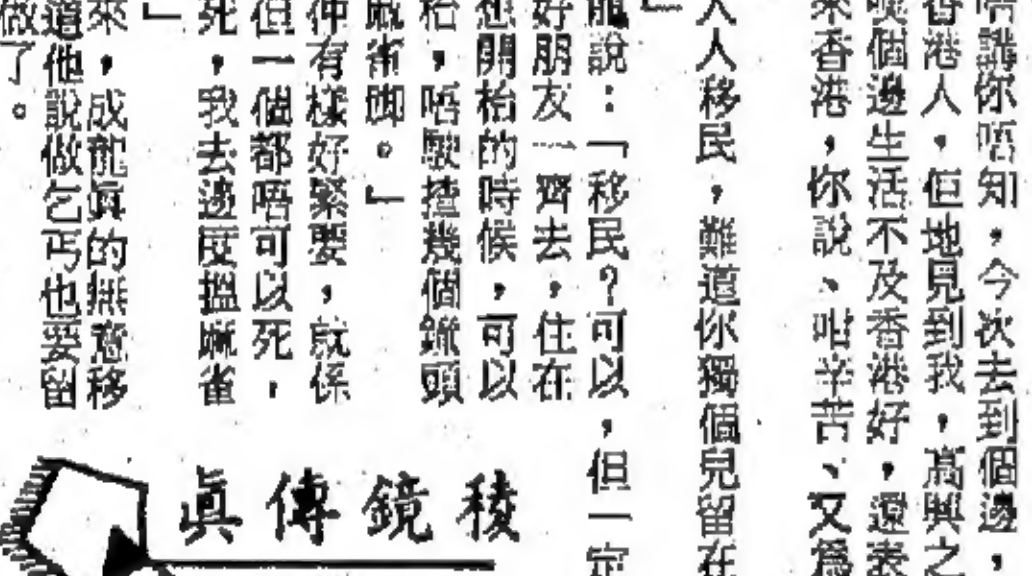 唔講你唔知，今次去到個邊，
香港人，但地見到我，高興之
嘆個邊生活不及香港好，還表
來香港，你說、咁辛苦、又爲
人人移民，難道你獨個兒留在
」
龍說：「移民？可以，但一定
好朋友一齊去，住在
想開枱的時候，可以
枱，唔駛揸幾個鐘頭
脚。」
仲有樣好緊要，就係
但一個都唔可以死，
死，我去邊度搵麻雀
」
來，成龍眞的無意移
道他說做乞丐也要留
做了。
稜鏡傳眞